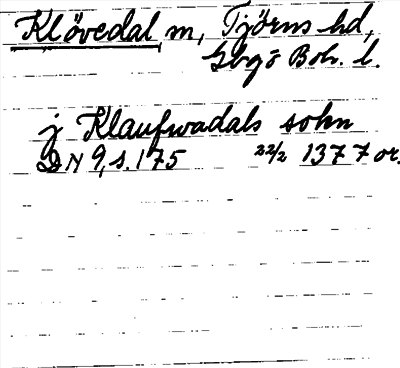 Klövedal m, Tjörns hd,
Gbgs Boh. l.
j Klaufwadals sokn
DN 9, s. 175 22/2 1377 or.